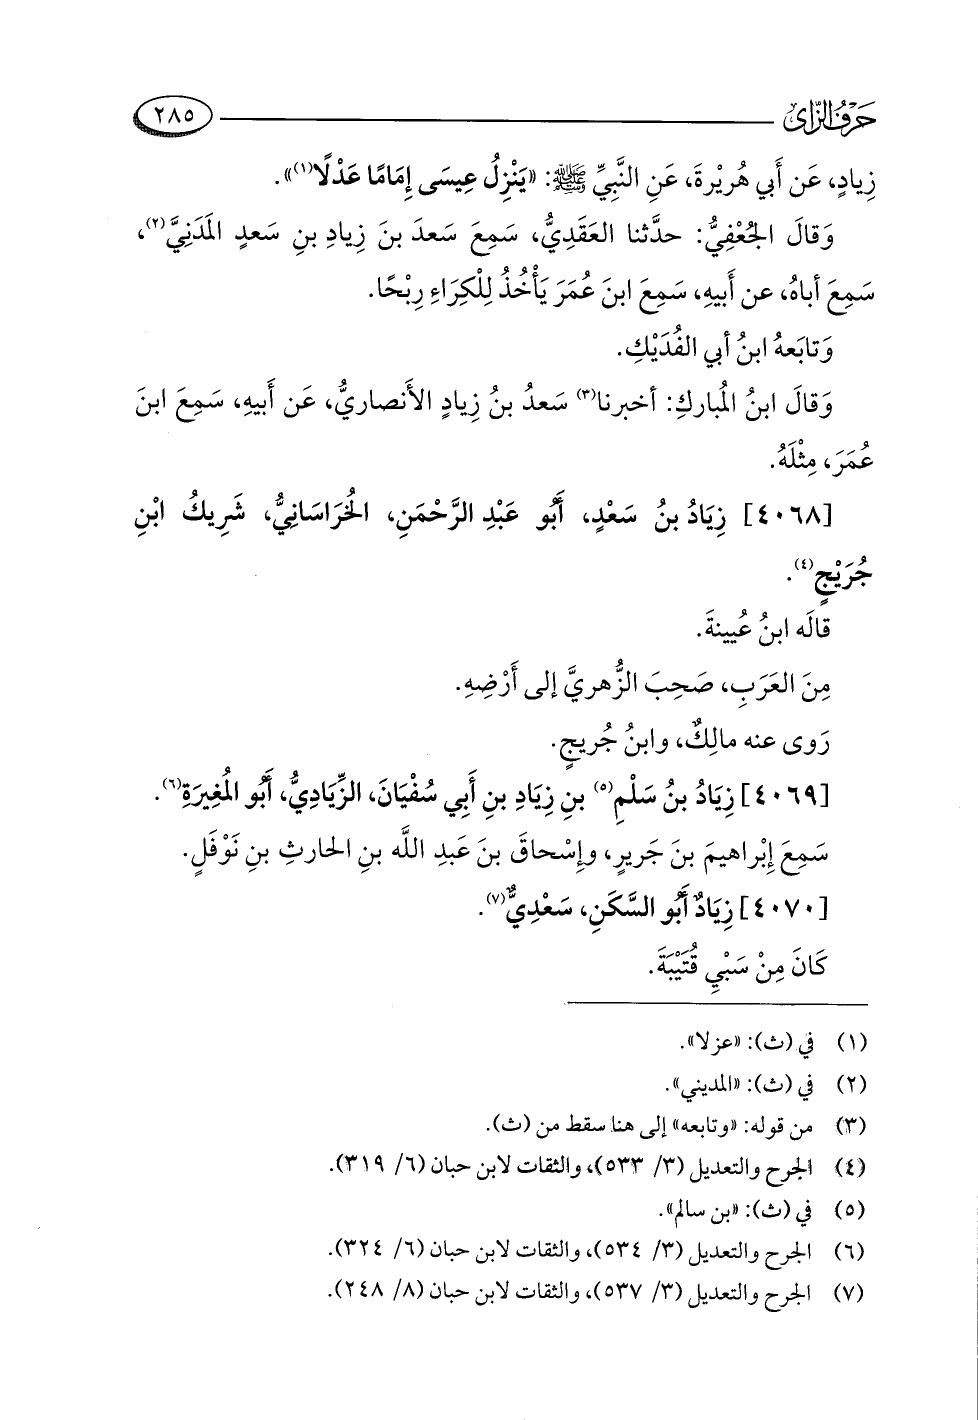 حَرْفُ الزَّاي
٢٨٥
زِيادٍ، عَن أَبي هُريْرةَ، عَنِ النَّبِيِّ ﷺ: «يَنْزِلُ عِيسَى إِمَامًا عَدْلًا(١)».
وَقالَ الجُعْفِيُّ: حدَّثنا العَقَدِيُّ، سَمِعَ سَعدَ بنَ زِيادِ بنِ سَعدٍ المَدَنِيَّ(٢)،
سَمِعَ أباهُ، عن أَبيهِ، سَمِعَ ابنَ عُمَرَ يَأْخُذُ لِلْكِرَاءِ رِبْحًا.
وَتابَعهُ ابنُ أبي الفُدَيْكِ.
وَقالَ ابنُ المُبارَكِ: أخبرنا(٣) سَعدُ بنُ زِيادٍ الأَنصاريُّ، عَن أَبيهِ، سَمِعَ ابنَ
عُمَرَ، مِثْلَهُ.
[٤٠٦٨] زِيَادُ بنُ سَعْدٍ، أَبُو عَبْدِ الرَّحْمَنِ، الخُرَاسَانِيُّ، شَرِيكُ ابْنِ
جُرَيْجٍ(٤).
قالَه ابنُ عُيينةَ.
مِنَ العَرَبِ، صَحِبَ الزُّهريَّ إلى أَرْضِهِ.
رَوى عنه مالِكٌ، وابنُ جُريجٍ.
[٤٠٦٩] زِيَادُ بنُ سَلْمِ(٥) بنِ زِيَادِ بنِ أَبِي سُفْيَانَ، الزِّيَادِيُّ، أَبُو المُغِيرَةِ(٦).
سَمِعَ إِبْراهيمَ بنَ جَريرٍ، وإِسْحاقَ بنَ عَبدِ اللَّه بنِ الحارثِ بنِ نَوْفَلٍ.
[٤٠٧٠] زِيَادٌ أَبُو السَّكَنِ، سَعْدِيٌّ(٧).
كَانَ مِنْ سَبْيِ قُتَيْبَةَ.
(١) في (ث): «عزلا».
(٢) في (ث): «المديني».
(٣) من قوله: «وتابعه» إلى هنا سقط من (ث).
(٤) الجرح والتعديل (٣/ ٥٣٣)، والثقات لابن حبان (٦/ ٣١٩).
(٥) في (ث): «بن سالم».
(٦) الجرح والتعديل (٣/ ٥٣٤)، والثقات لابن حبان (٦/ ٣٢٤).
(٧) الجرح والتعديل (٣/ ٥٣٧)، والثقات لابن حبان (٨/ ٢٤٨).